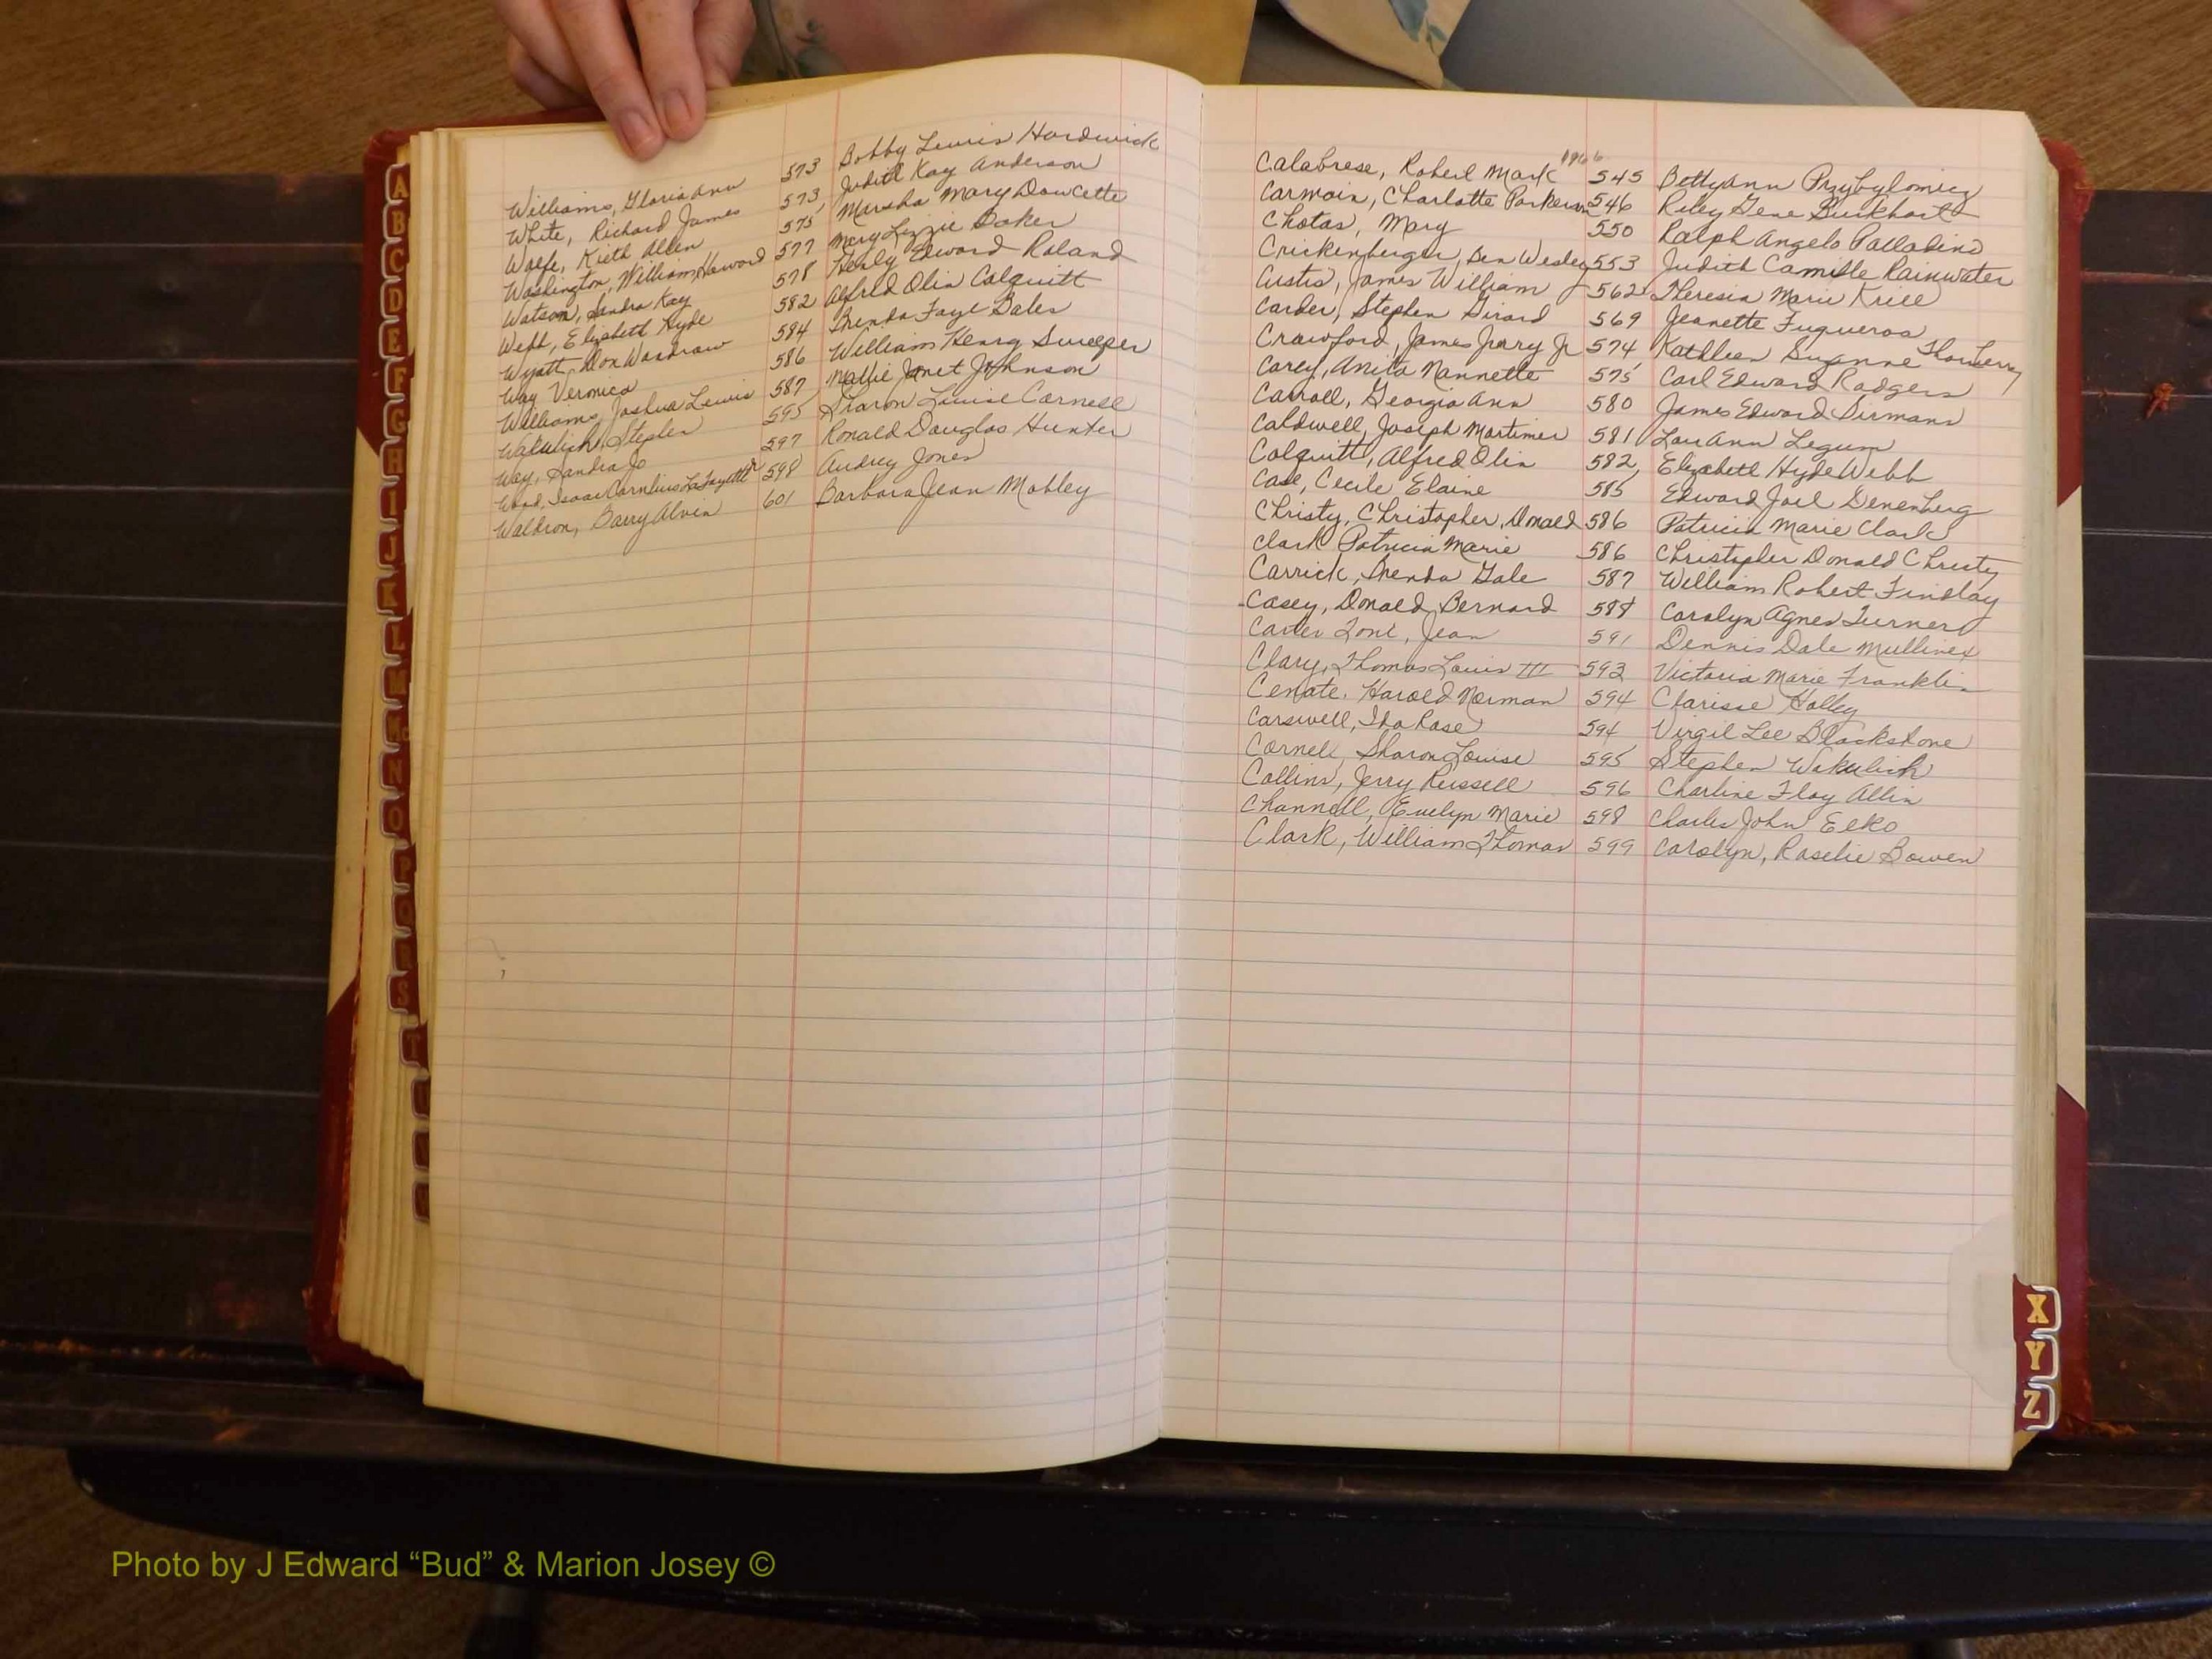 Williams, Gloria Ann 573 Bobby Lewis Hardwick
White, Richard James 573 Judith Kay Anderson
Wolfe, Kieth Allen 575 Marsha Mary Dowcette
Washington, William Howard 577 Mary Lizzie Baker
Watson, Sandra Kay 578 Henly Edward Roland
Webb, Elizabeth Hyde 582 Alfred Olin Colquitt
Wyatt, Don Wardraw 584 Brenda Faye Bales
Way Veronica 586 William Henry Sweeper
Williams, Joshua Lewis 587 Mallie Janet Johnson
Wakulich, Stephen 595 Sharon Louise Cornell
Way, Sandra Jo 597 Ronald Douglas Hunter
Ward, Isaac Cornelius LaFayette Jr 598 Audrey Jones
Waldron, Barry Alvin 601 Barbara Jean Mobley
1966
Calabrese, Robert Mark 545 Betty Ann Przybylowicz
Carmain, Charlotte Parkerson 546 Riley Gene Burkhart
Chotas, Mary 550 Ralph Angelo Palladino
Crickenberger, Ben Wesley 553 Judith Camille Rainwater
Custis, James William J 562 Theresia Marie Krill
Carder, Stephen Girard 569 Jeanette Fugueroa
Crawford, James Jerry Jr 574 Kathleen Suzanne Thornberry
Corey, Anita Nannette 575 Carl Edward Rodgers
Carroll, Georgia Ann 580 James Edward Dirmann
Caldwell, Joseph Mortimer 581 Lou Ann Legum
Colquitt, Alfred Olin 582 Elizabeth Hyde Webb
Case, Cecile Elaine 585 Edward Joel Denenberg
Christy, Christopher, Donald 586 Patricia Marie Clark
Clark Patricia Marie 586 Christopher Donald Christy
Carrick, Brenda Gale 587 William Robert Findlay
Casey, Donald Bernard 588 Carolyn Agnes Turner
Carter Toni, Jean 591 Dennis Dale Mullinex
Clary, Thomas Louis III 593 Victoria Marie Franklin
Cenate. Harold Norman 594 Clarisse Holley
Carswell, Ida Rose 594 Virgil Lee Blackstone
Cornell, Sharon Louise 595 Stephen Wakulich
Collins, Jerry Russell 596 Charline Floy Allin
Channell, Evelyn Marie 598 Charles John Elko
Clark, William Thomas 599 Carolyn, Roselie Bowen
A
B
C
D
E
F
G
H
I
J
K
L
M
Mc
N
O
P
Q
R
S
T
X
Y
Z
Photo by J Edward “Bud” & Marion Josey ©